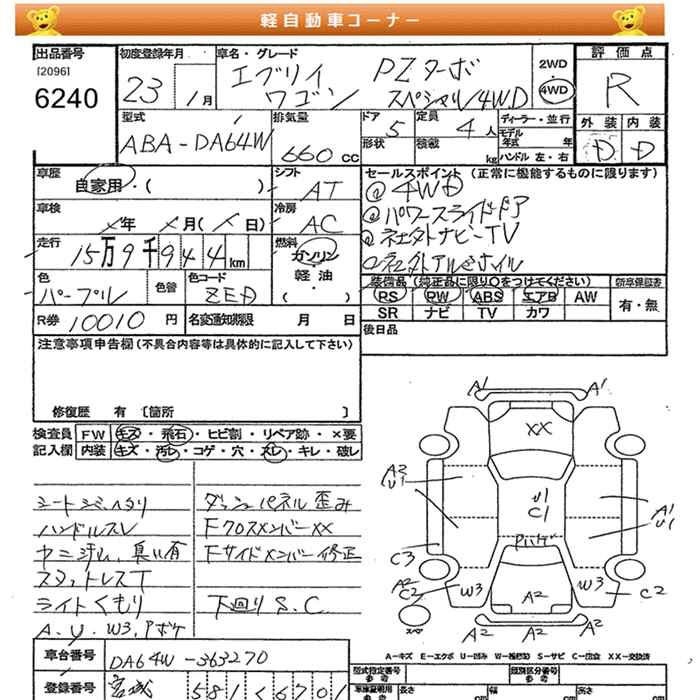 軽自動車コーナー
出品番号
[2096]
6240
初度登録年月
23 1月
車名・グレード
エブリイ PZターボ
ワゴン スペシャル4WD
2WD
4WD
評価点
R
外装 内装
D D
型式
ABA-DA64W
排気量
660 cc
ドア
5
形状
定員
4人
積載
kg
ディーラー・並行
モデル
年式 年
ハンドル 左・右
車歴
自家用・( )
シフト
AT
車検
年 月( 日)
冷房
AC
走行
15万9千944km
燃料
ガソリン
軽油
・( )
色
パープル
色替
色コード
ZED
R券 10010円
名変通知期限 月 日
セールスポイント(正常に機能するものに限ります)
4WD
パワースライドドア
社外ナビ-TV
社外アルミホイル
装備品(純正品に限り〇をつけてください)
新車保証書
PS PW ABS エアB AW
有・無
SR ナビ TV カワ
後日品
注意事項申告欄(不具合内容等は具体的に記入して下さい)
修復歴 有 [箇所 ]
検査員 FW キズ・飛石・ヒビ割・リペア跡・×要
記入欄 内装 キズ・汚レ・コゲ・穴・スレ・キレ・破レ
ハンドルスレ
ヤニ汚レ、臭い有
スタットレスT
ライトくもり
A、U、W3、Pボケ
ダッシュパネル歪み
Fクロスメンバー XX
Fサイドメンバー修正
下回りS.C
A1 A1
XX
A2
U1
U1
C1
A1
U1
Pボケ
C3
A2
C2
W3
W3
C2
A2
A2 A2
スペア
A-キズ E-エクボ U-凹み W-補修跡 S-サビ C-腐食 XX-交換済
車台番号 DA64W-363270
登録番号 宮城 581 く 6701
型式指定番号
参考
類別区分番号
参考
車庫証明用
参考
長さ cm
幅 cm
高さ cm